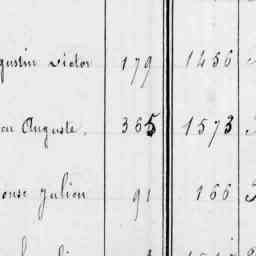 gustin Victor 179 1456
Auguste. 365 1573
Julien 91 166